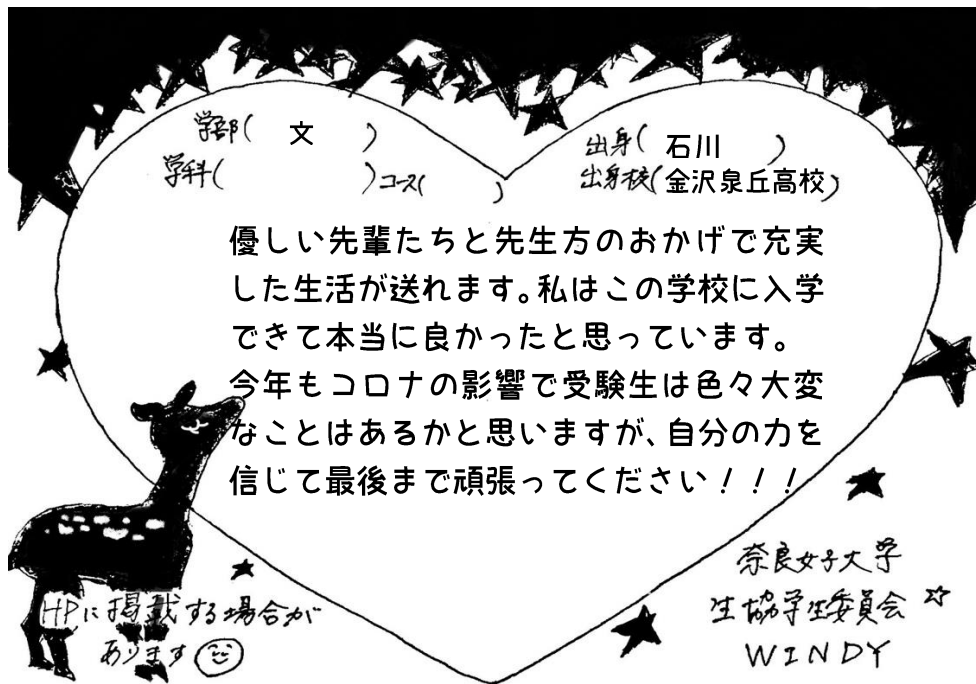 学部( 文 )
学科( )コース( )
出身( 石川 )
出身校(金沢泉丘高校)
優しい先輩たちと先生方のおかげで充実
した生活が送れます。私はこの学校に入学
できて本当に良かったと思っています。
今年もコロナの影響で受験生は色々大変
なことはあるかと思いますが、自分の力を
信じて最後まで頑張ってください！！！
HPに掲載する場合が
あります
奈良女子大学
生協学生委員会☆
WINDY